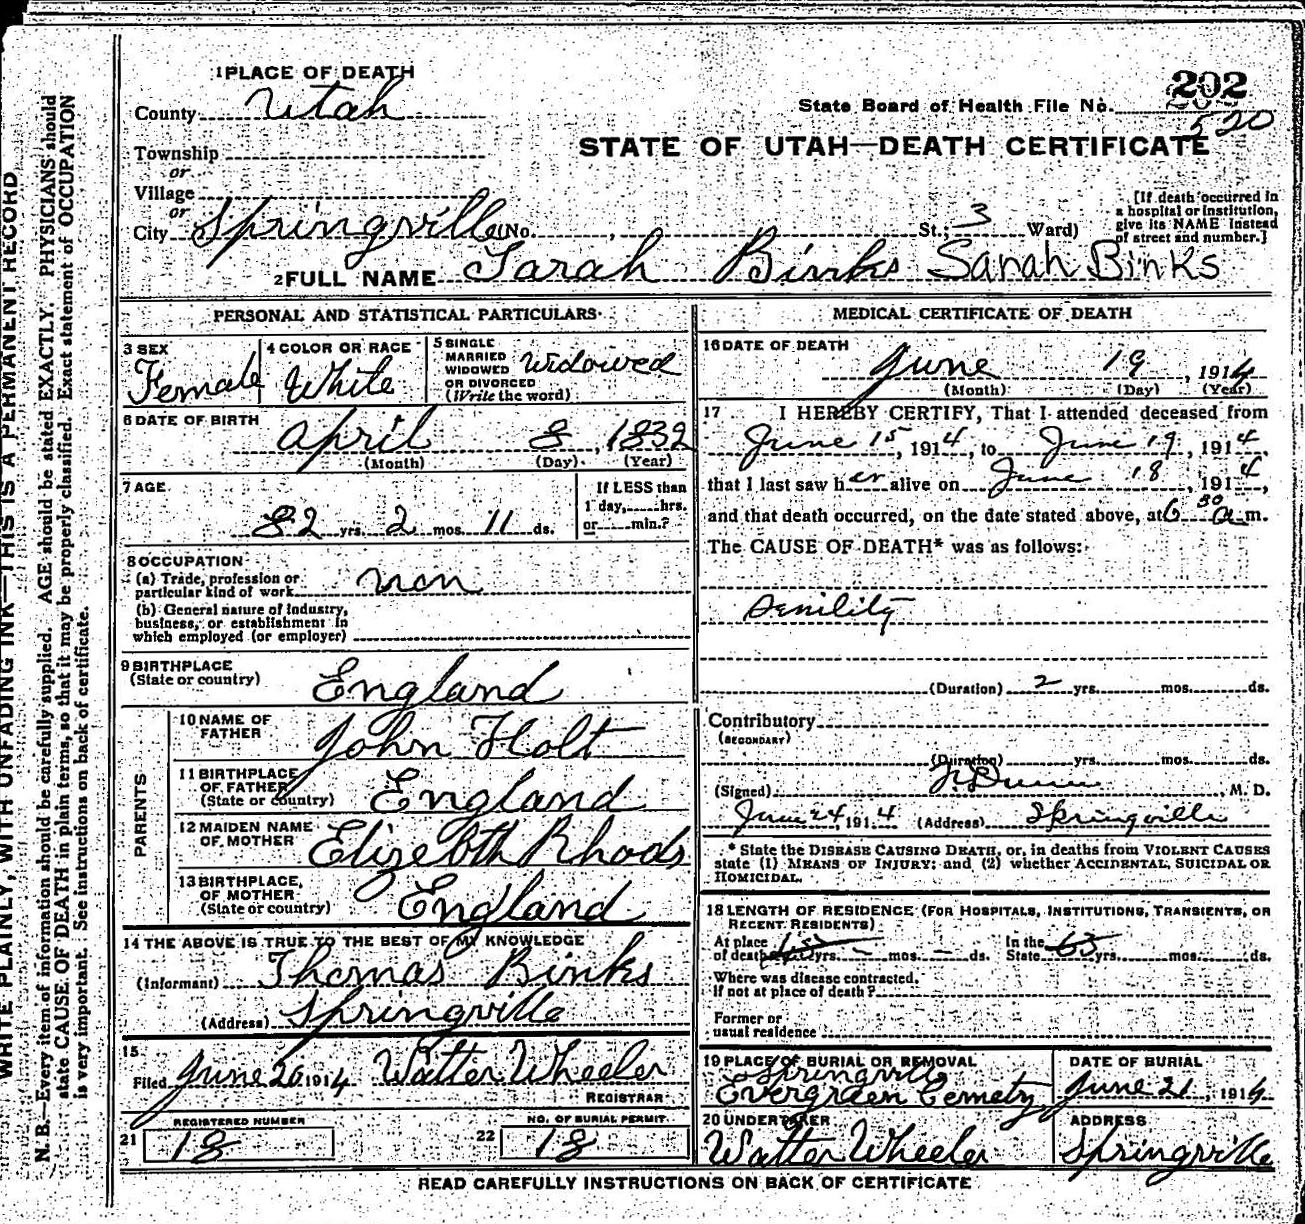 WRITE PLAINLY, WITH UNFADING INK—THIS IS A PERMANENT RECORD
N. B.—Every item of information should be carefully supplied. AGE should be stated EXACTLY. PHYSICIANS should
state CAUSE OF DEATH in plain terms, so that it may be properly classified. Exact statement of OCCUPATION
is very important. See instructions on back of certificate.
1 PLACE OF DEATH
County Utah
Township
or
Village
or
City Springville (No. , St.; 3 Ward)
202
State Board of Health File No.
520
STATE OF UTAH—DEATH CERTIFICATE
[If death occurred in
a hospital or institution,
give its NAME instead
of street and number.]
2 FULL NAME Sarah Binks Sarah Binks
PERSONAL AND STATISTICAL PARTICULARS
3 SEX
Female
4 COLOR OR RACE
White
5 SINGLE
MARRIED
WIDOWED
OR DIVORCED
(Write the word)
Widowed
6 DATE OF BIRTH
April 8, 1832
(Month) (Day) (Year)
7 AGE
82 yrs. 2 mos. 11 ds.
If LESS than
1 day, hrs.
or min.?
8 OCCUPATION
(a) Trade, profession or
particular kind of work non
(b) General nature of industry,
business, or establishment in
which employed (or employer)
9 BIRTHPLACE
(State or country)
England
PARENTS
10 NAME OF
FATHER
John Holt
11 BIRTHPLACE
OF FATHER
(State or country)
England
12 MAIDEN NAME
OF MOTHER
Elizebth Rhods
13 BIRTHPLACE,
OF MOTHER
(State or country)
England
14 THE ABOVE IS TRUE TO THE BEST OF MY KNOWLEDGE
(Informant) Thomas Binks
(Address) Springville
15
Filed June 20 1914 Walter Wheeler
REGISTRAR
21 REGISTERED NUMBER
18
22 NO. OF BURIAL PERMIT
18
MEDICAL CERTIFICATE OF DEATH
16 DATE OF DEATH
June 19, 1914
(Month) (Day) (Year)
17 I HEREBY CERTIFY, That I attended deceased from
June 15, 1914, to June 19, 1914.
that I last saw her alive on June 18, 1914,
and that death occurred, on the date stated above, at 6 30 a m.
The CAUSE OF DEATH* was as follows:
Senility
(Duration) 2 yrs. mos. ds.
Contributory
(SECONDARY)
(Duration) yrs. mos. ds.
(Signed) F. Dunn, M. D.
June 24, 1914 (Address) Springville
* State the DISEASE CAUSING DEATH, or, in deaths from VIOLENT CAUSES
state (1) MEANS OF INJURY; and (2) whether ACCIDENTAL, SUICIDAL OR
HOMICIDAL.
18 LENGTH OF RESIDENCE (FOR HOSPITALS, INSTITUTIONS, TRANSIENTS, OR
RECENT RESIDENTS)
At place
of death yrs. — mos. — ds.
In the
State 63 yrs. mos. ds.
Where was disease contracted,
If not at place of death?
Former or
usual residence
19 PLACE OF BURIAL OR REMOVAL
Springville
Evergreen Cemetry
DATE OF BURIAL
June 21, 1914
20 UNDERTAKER
Walter Wheeler
ADDRESS
Springville
READ CAREFULLY INSTRUCTIONS ON BACK OF CERTIFICATE